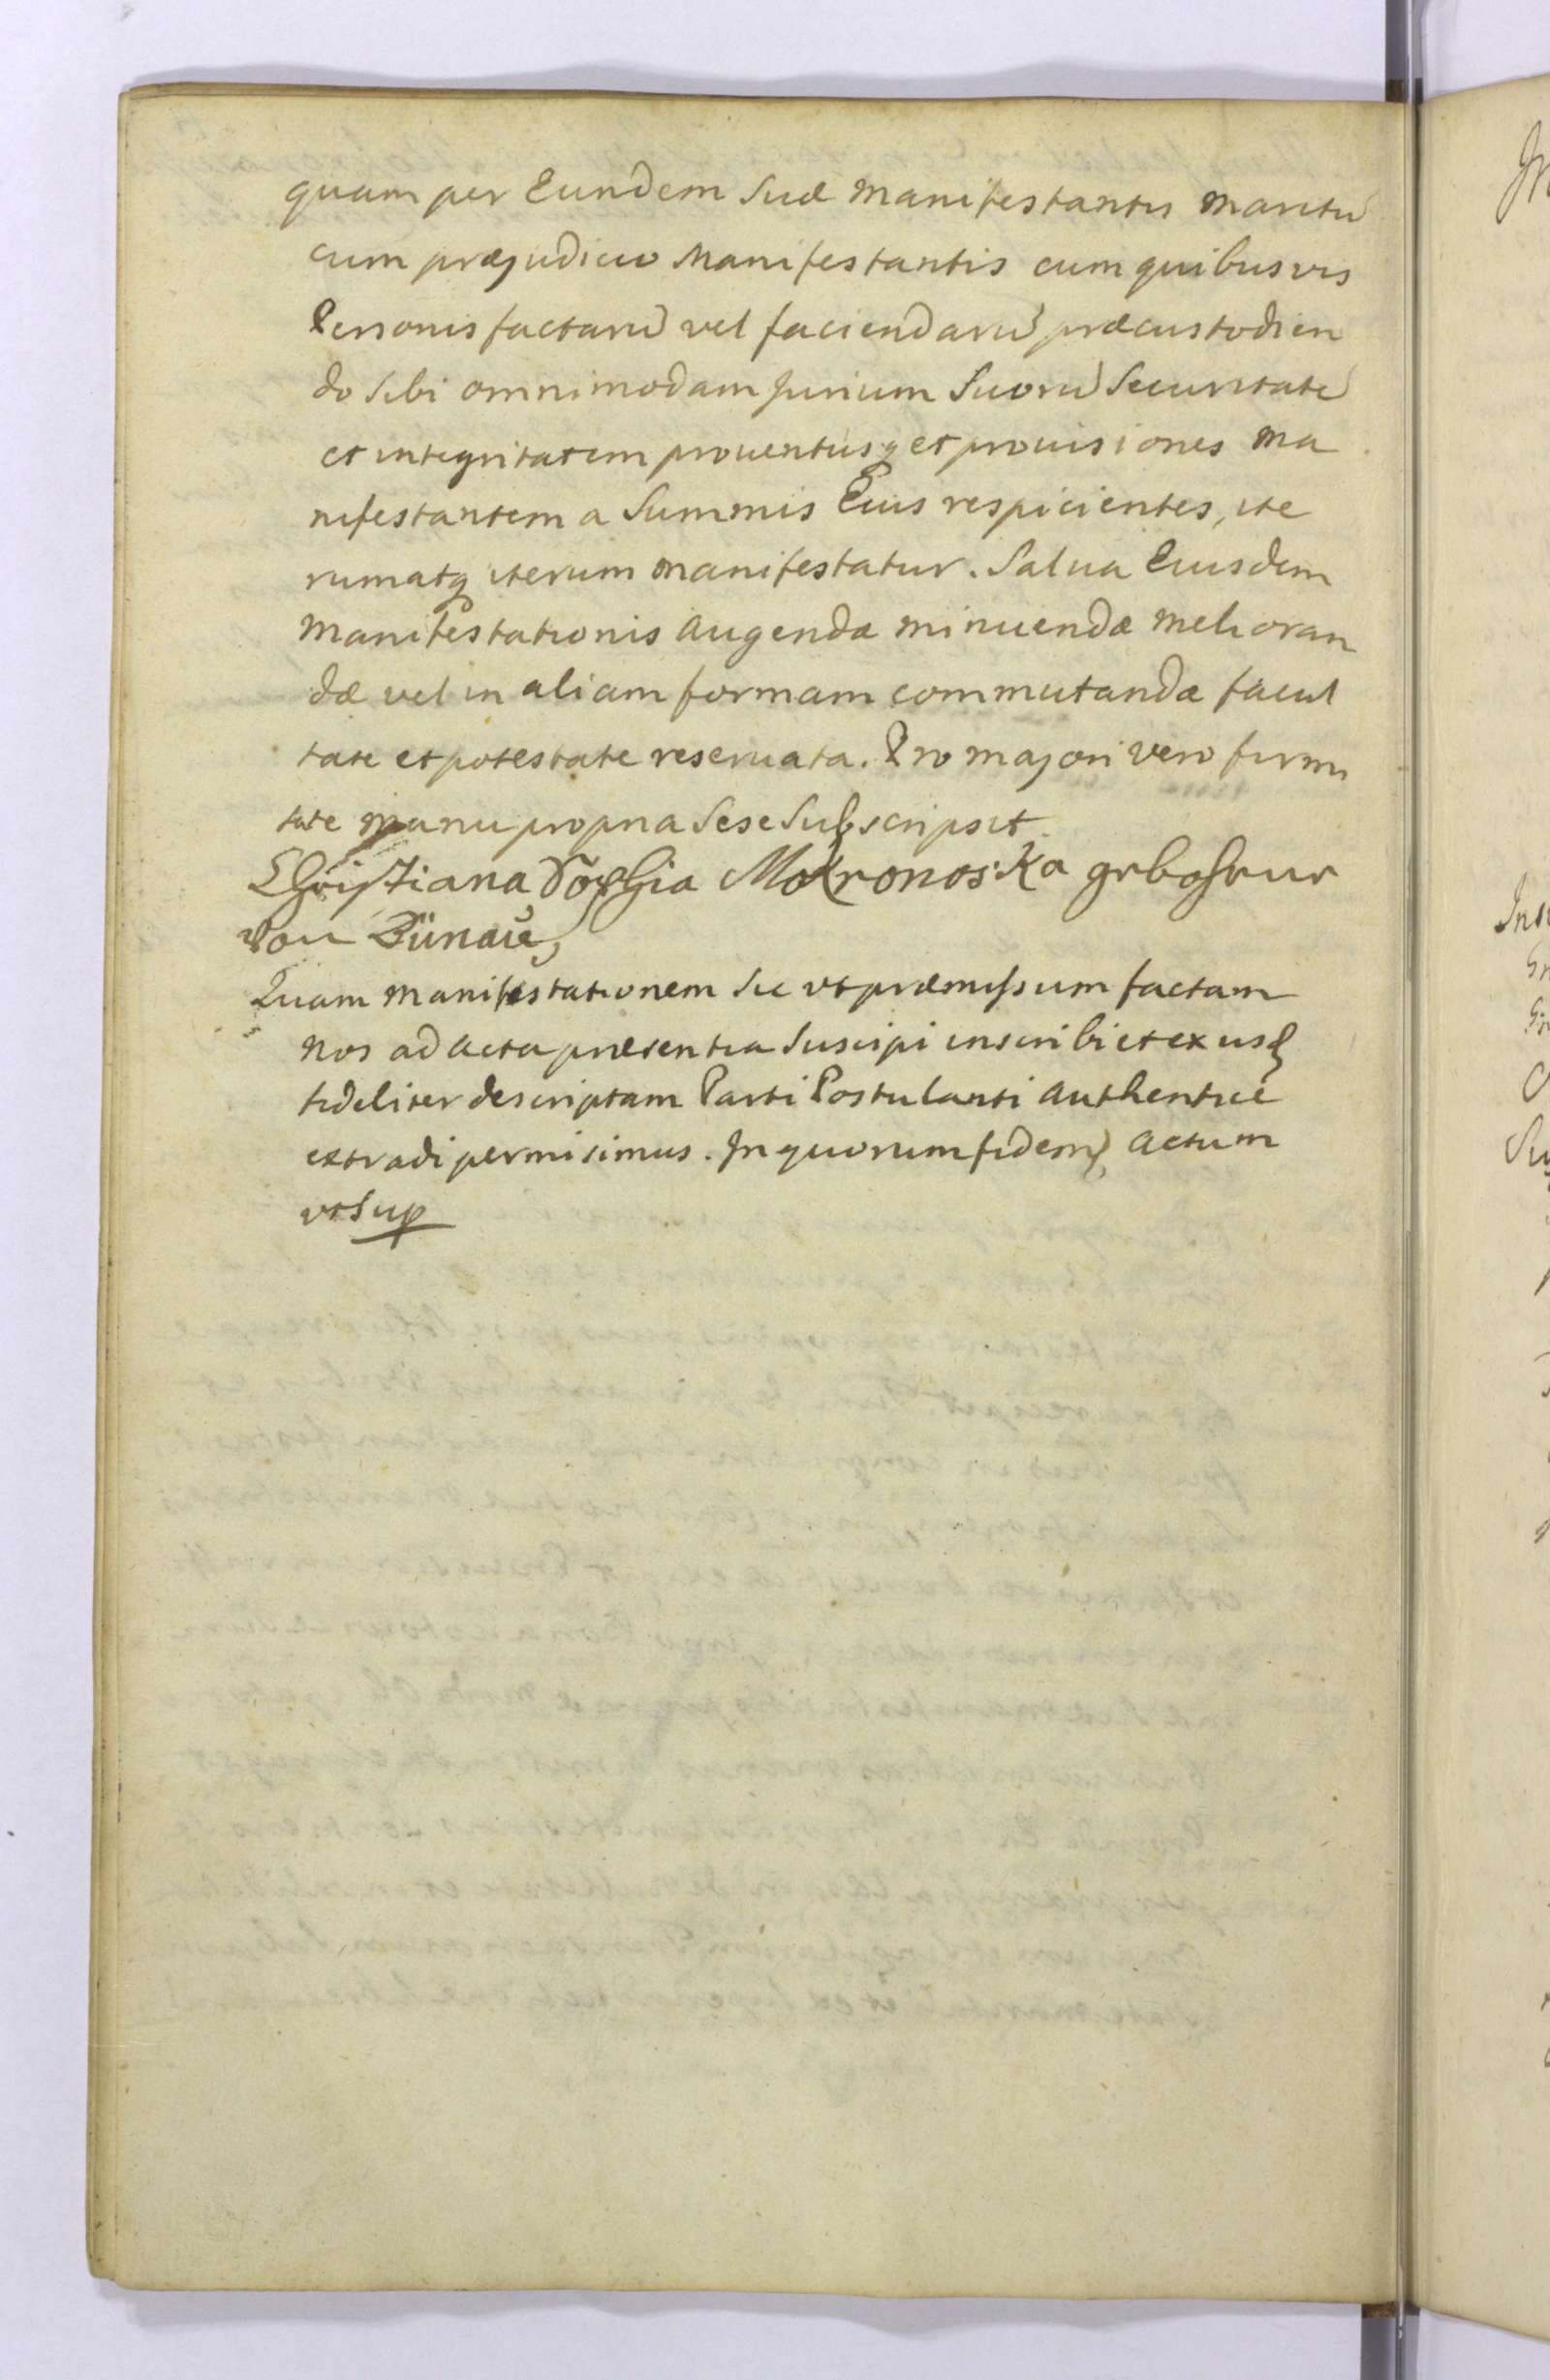 quam per Eundem Suæ Manifestantis Maritũ
cum præjudicio Manifestantis cum quibusvis
Personis factarũ vel faciendarũ præcustodien
do Sibi omnimodam Jurium Suorũ Securitatẽ
et integritatem proventusq et provisiones Ma
nifestantem a Summis Eius respicientes, ite
rumatq iterum manifestatur. Salva Eiusdem
Manifestationis augendæ minuendæ melioran
dæ vel in aliam formam commutandæ facul
tate et potestate reservata. Pro majori vero firmi
tate manu propria Sese Subscripsit.
Christiana Sophia Mokronoska gebohrne
von Bünau,
Quam Manifestationem Sic ut præmissum factam
Nos ad Acta præsentia Suscipi inscribi et ex iisd
fideliter descriptam Parti Postulanti Authentice
extradi permisimus. In quorum fidem, Actum
ut Sup